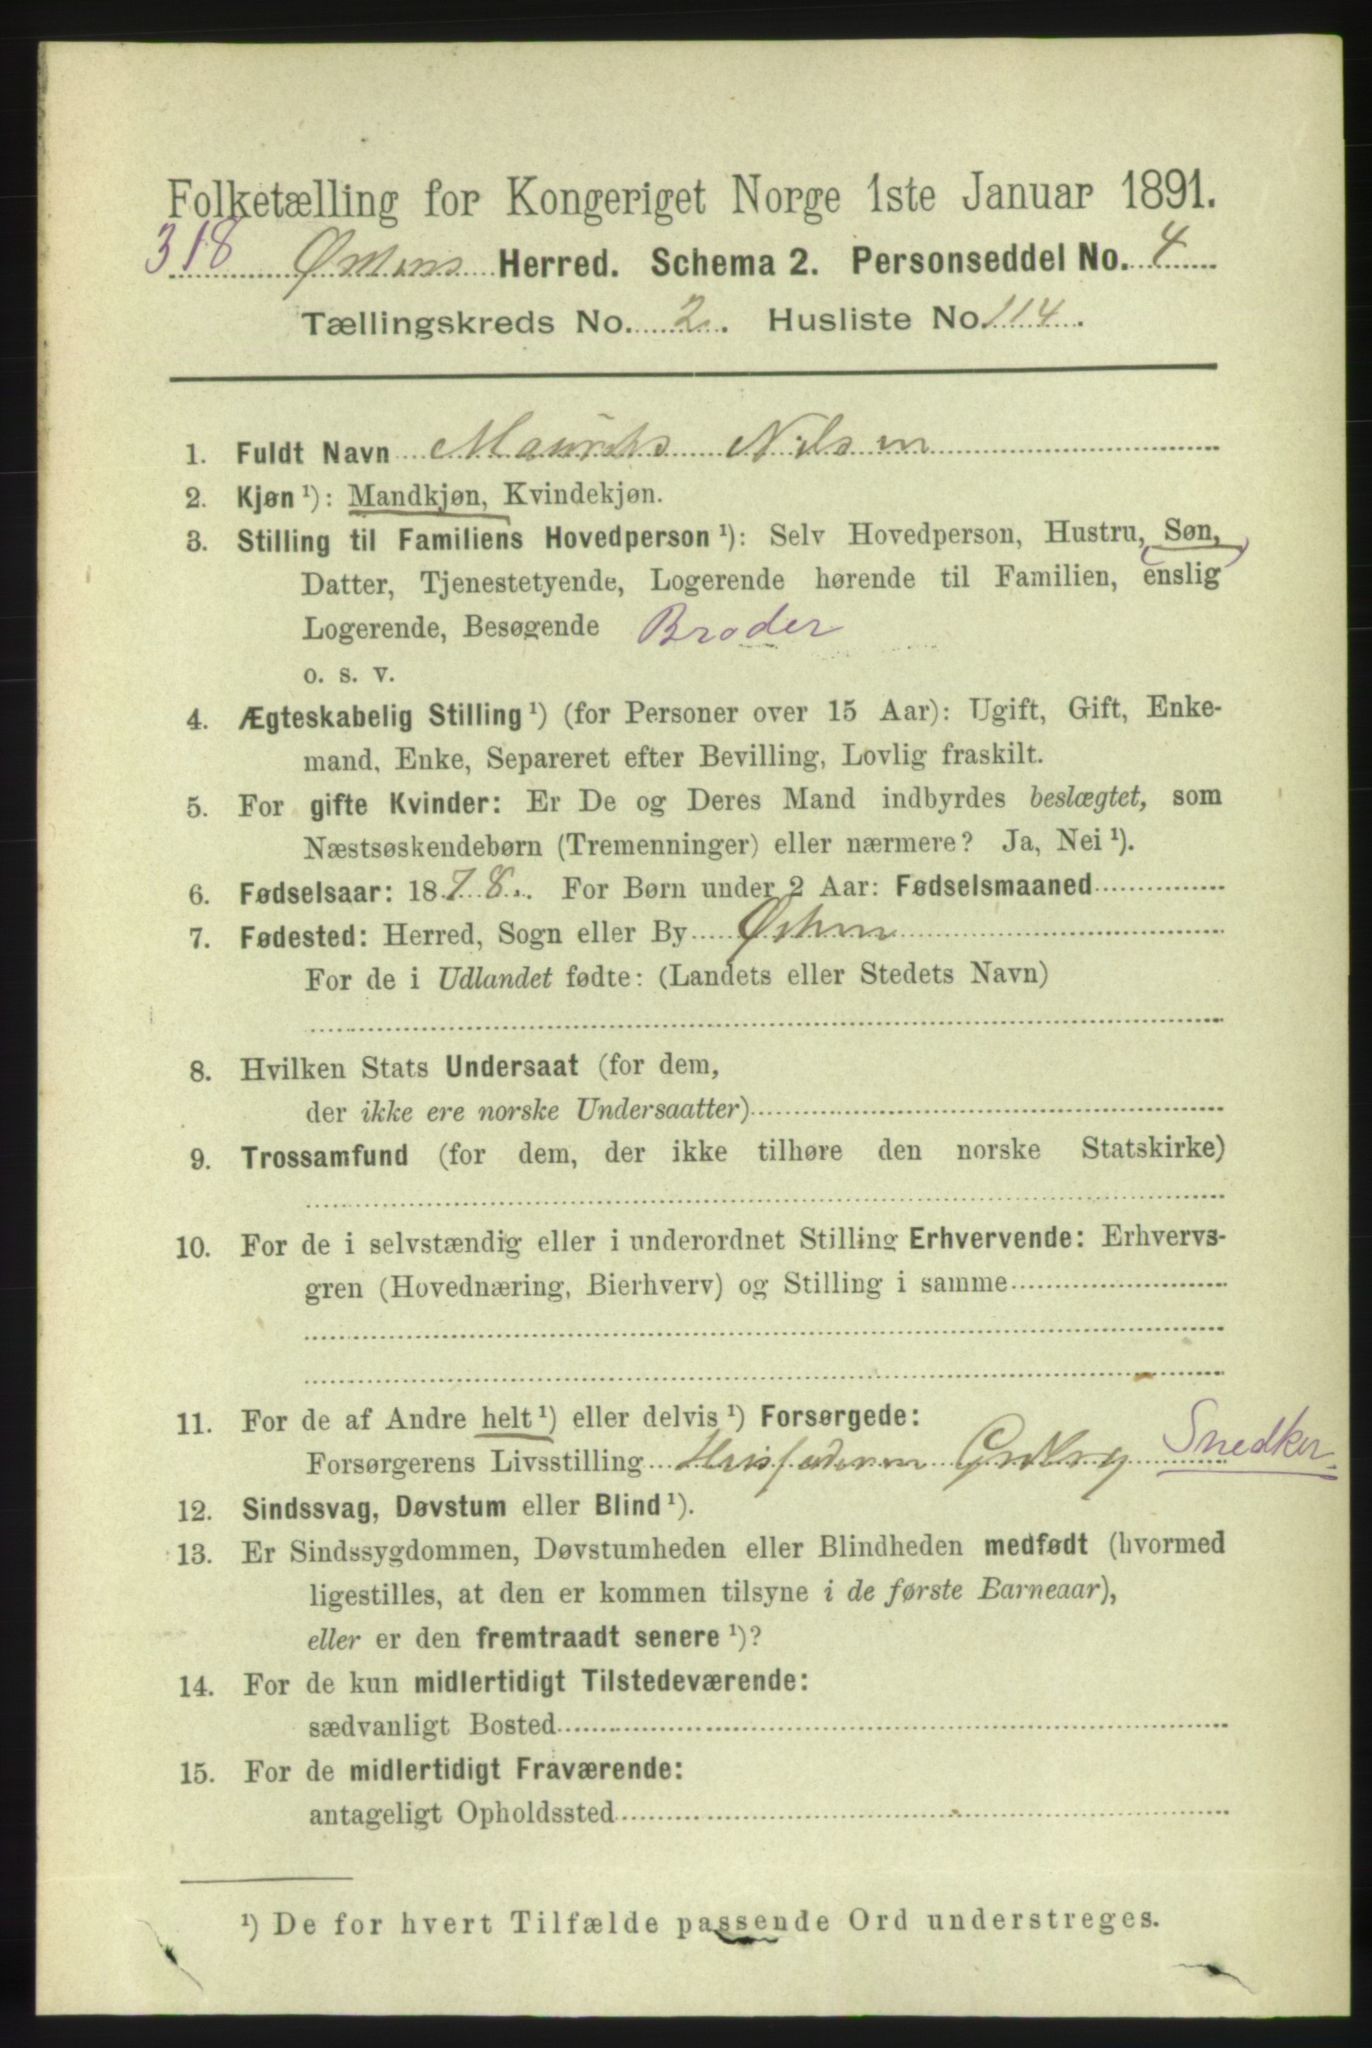 Folketælling for Kongeriget Norge 1ste Januar 1891.
318 Herred. Schema 2. Personseddel No. 4
Tællingskreds No. 2. Husliste No 114.
1. Fuldt Navn Nilsen
2. Kjøn ¹): Mandkjøn, Kvindekjøn.
3. Stilling til Familiens Hovedperson ¹): Selv Hovedperson, Hustru, Søn,
Datter, Tjenestetyende, Logerende hørende til Familien, enslig
Logerende, Besøgende Broder
o. s. v.
4. Ægteskabelig Stilling ¹) (for Personer over 15 Aar): Ugift, Gift, Enke-
mand, Enke, Separeret efter Bevilling, Lovlig fraskilt.
5. For gifte Kvinder: Er De og Deres Mand indbyrdes beslægtet, som
Næstsøskendebørn (Tremenninger) eller nærmere? Ja, Nei ¹).
6. Fødselsaar: 1878. For Børn under 2 Aar: Fødselsmaaned
7. Fødested: Herred, Sogn eller By
For de i Udlandet fødte: (Landets eller Stedets Navn)
8. Hvilken Stats Undersaat (for dem,
der ikke ere norske Undersaatter)
9. Trossamfund (for dem, der ikke tilhøre den norske Statskirke)
10. For de i selvstændig eller i underordnet Stilling Erhvervende: Erhvervs-
gren (Hovednæring, Bierhverv) og Stilling i samme
11. For de af Andre helt ¹) eller delvis ¹) Forsørgede:
Forsørgerens Livsstilling Snedker
12. Sindssvag, Døvstum eller Blind ¹).
13. Er Sindssygdommen, Døvstumheden eller Blindheden medfødt (hvormed
ligestilles, at den er kommen tilsyne i de første Barneaar),
eller er den fremtraadt senere ¹)?
14. For de kun midlertidigt Tilstedeværende:
sædvanligt Bosted
15. For de midlertidigt Fraværende:
antageligt Opholdssted
¹) De for hvert Tilfælde passende Ord understreges.